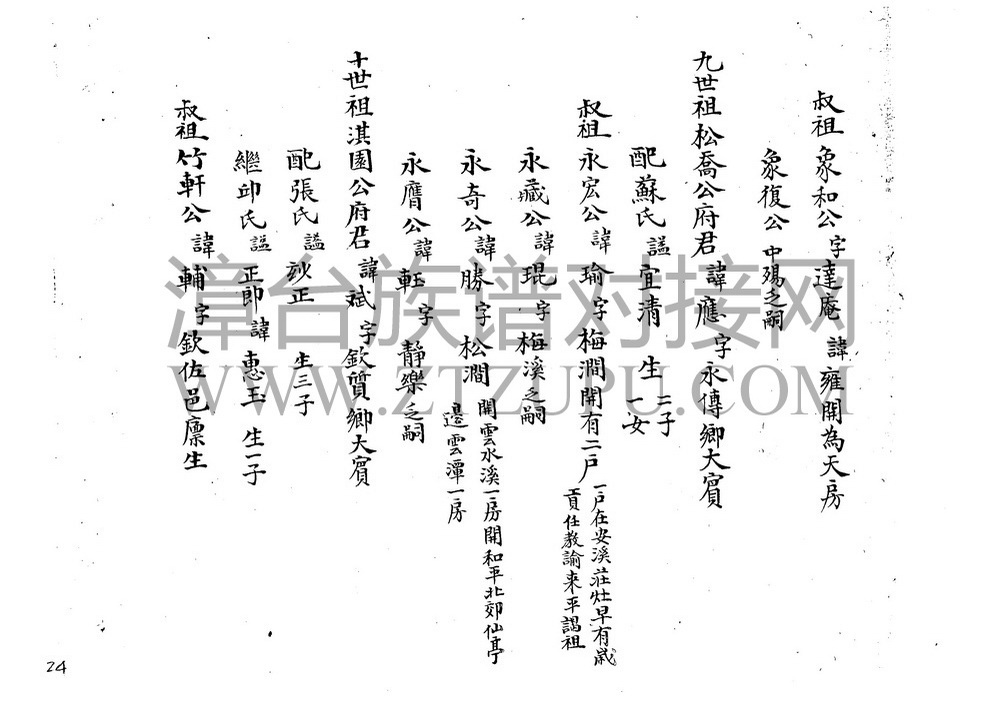 叔祖象和公字達庵諱雍開為天房
象復公中殤之嗣
九世祖松喬公府君諱應字永傳鄉大賓
配蘇氏諡宜清生二子一女
叔祖永宏公諱瑜字梅澗開有二戶一戶在安溪莊灶早有歲貢任教諭来平謁祖
永藏公諱琨字梅溪之嗣
永奇公諱勝字松澗開雲水溪一房開和平北郊仙亭邊雲潭一房
永膺公諱軠字靜樂之嗣
十世祖淇園公府君諱斌字欽質鄉大賓
配張氏諡淑正生三子
繼邱氏諡正郎諱惠玉生一子
叔祖竹軒公諱輔字欽佐邑廪生
24
漳台族谱对接网
WWW.ZTZUPU.COM